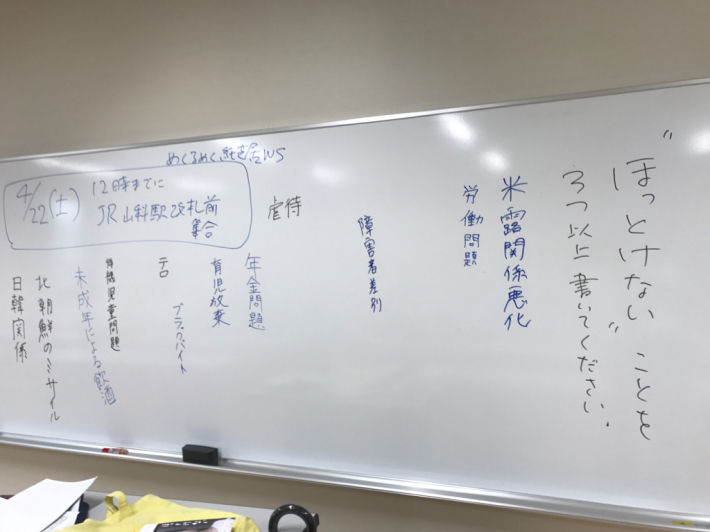 "ほっとけない"ことを
3つ以上書いてください。
米露関係悪化
労働問題
障害者差別
虐待
めくるめく紙芝居WS
4/22(土)
12時までに
JR山科駅改札前
集合
年金問題
育児放棄
ブラックバイト
テロ
待機児童問題
未成年による飲酒
北朝鮮のミサイル
日韓関係